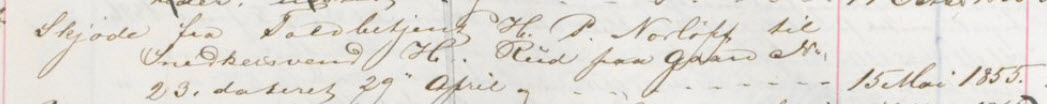 Skjøde fra Toldbetjent H. P. Norløff til
Snedkersvend H. Riid paa Gaard No.
23. dateret 29" April - - - - - - - 15 Mai 1855.